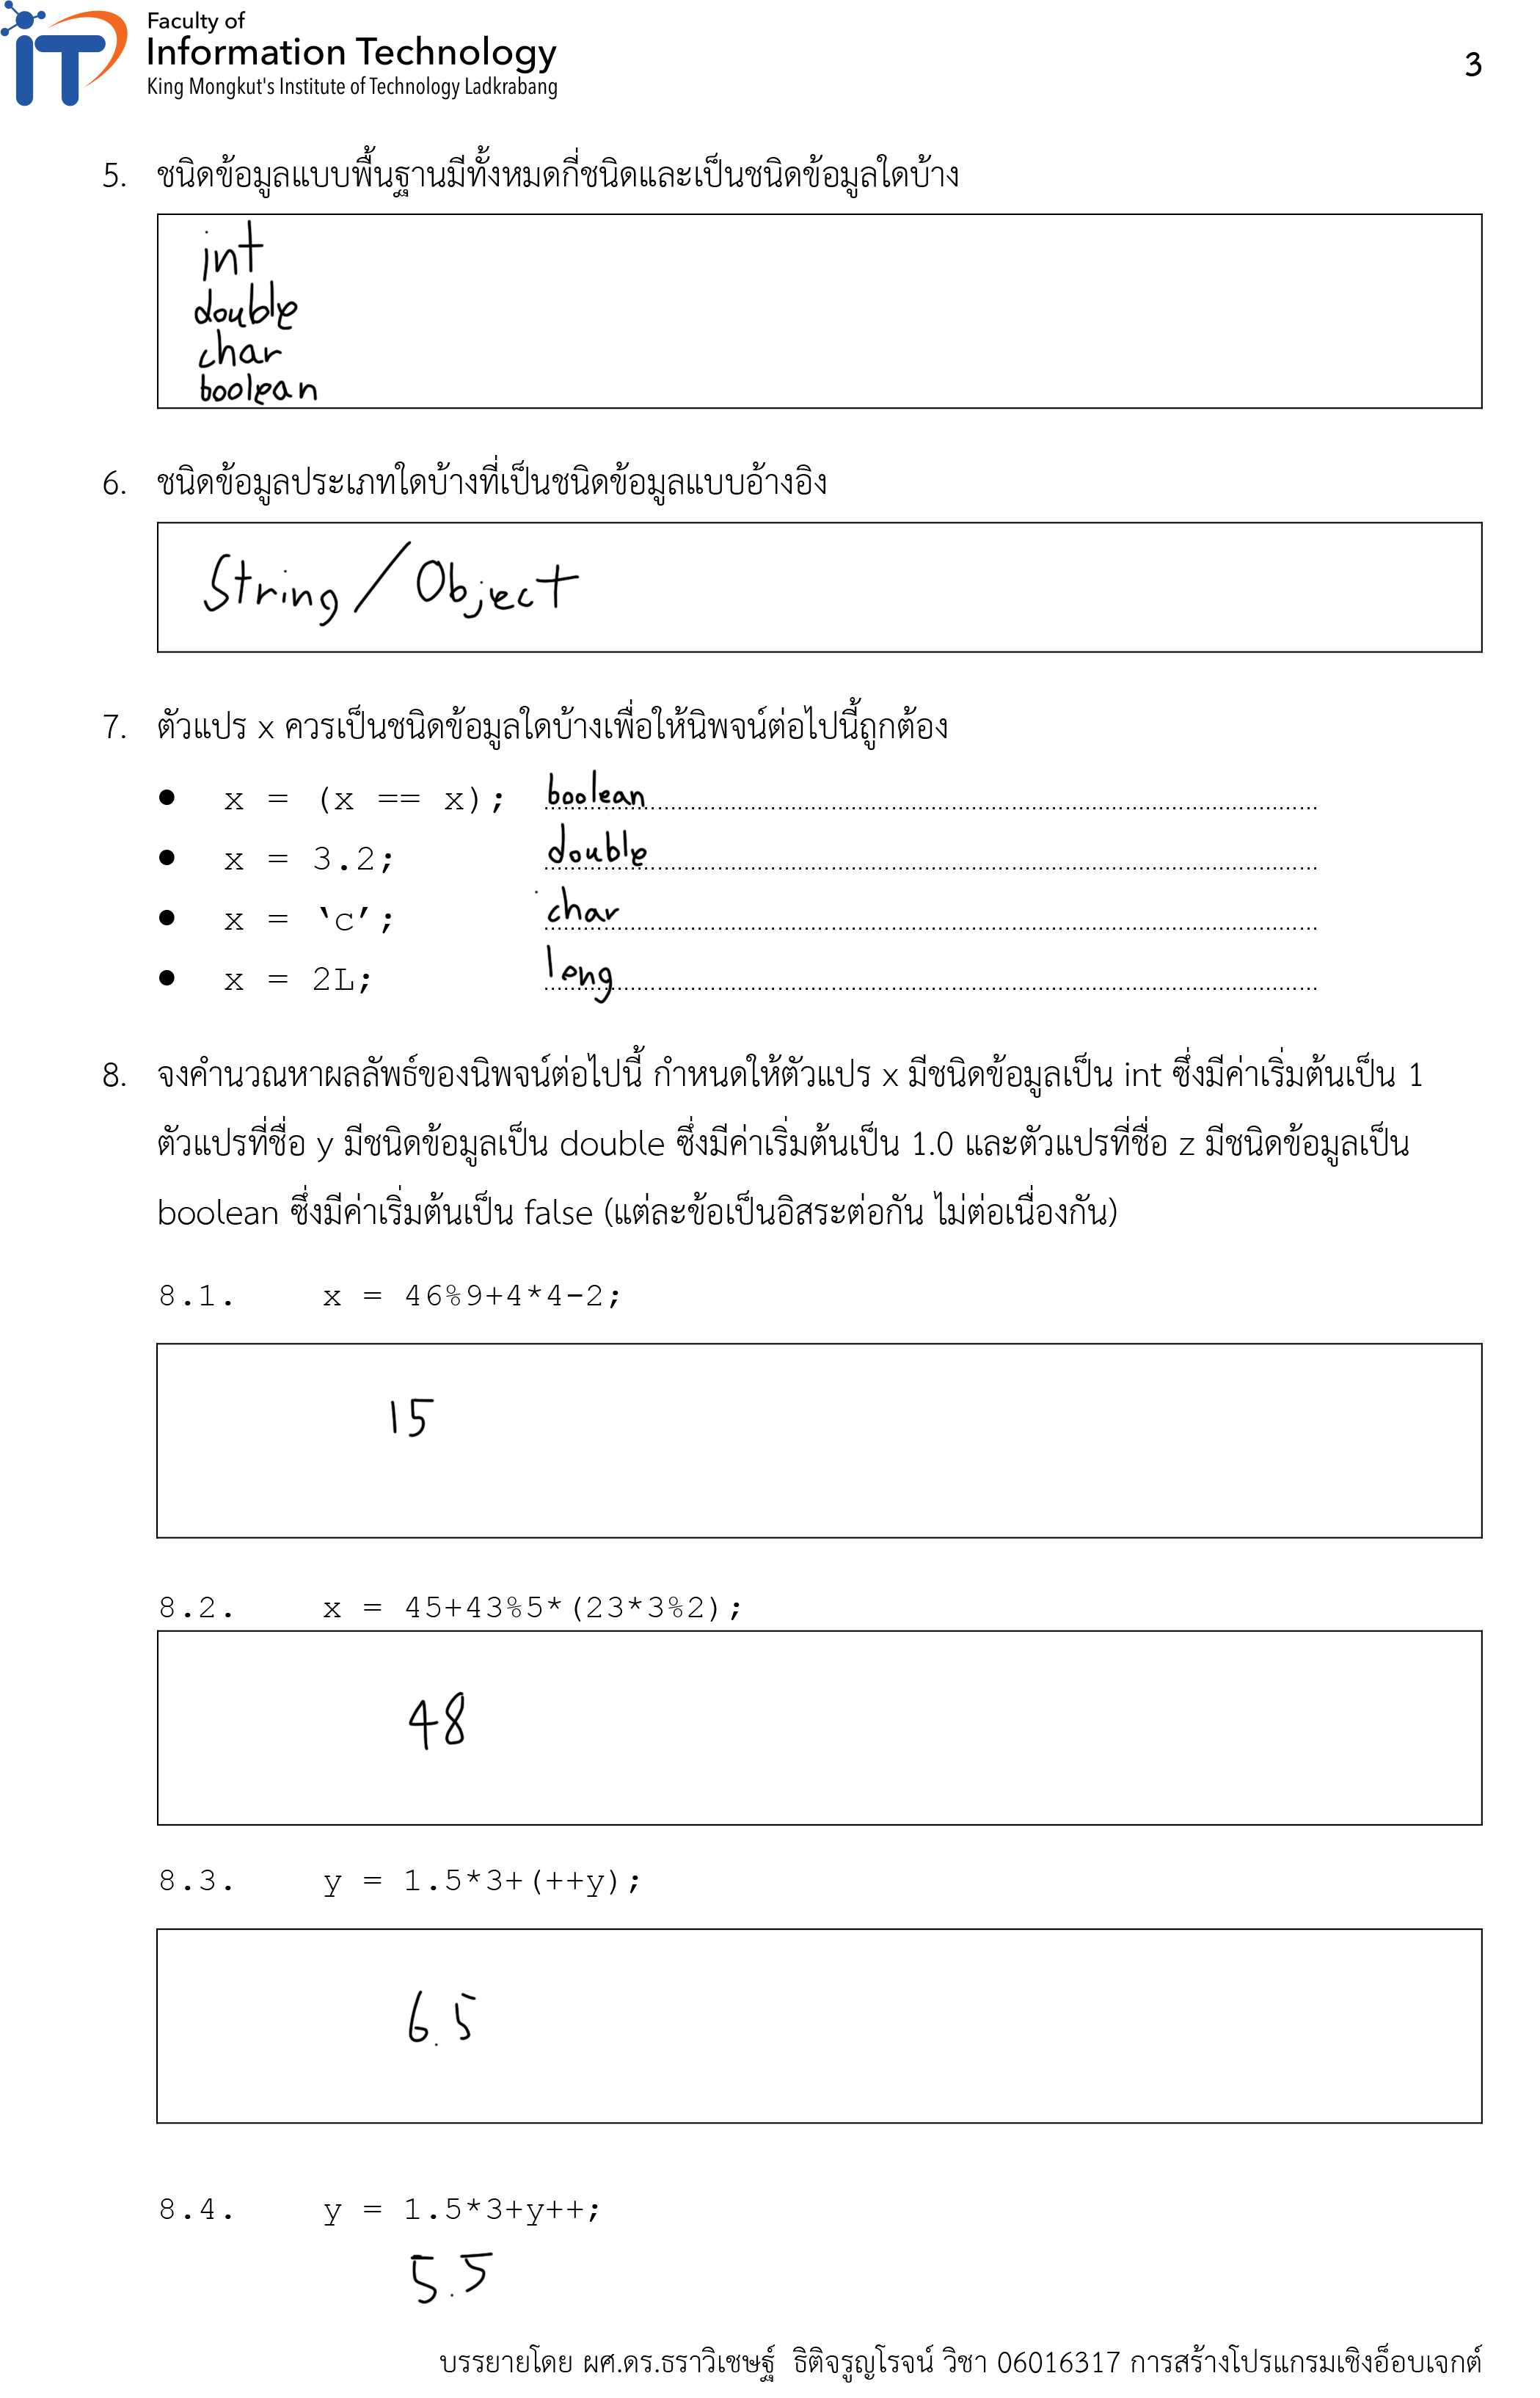 Faculty of
Information Technology
King Mongkut's Institute of Technology Ladkrabang
3
5. ชนิดข้อมูลแบบพื้นฐานมีทั้งหมดกี่ชนิดและเป็นชนิดข้อมูลใดบ้าง
int
double
char
boolean
6. ชนิดข้อมูลประเภทใดบ้างที่เป็นชนิดข้อมูลแบบอ้างอิง
String / Object
7. ตัวแปร x ควรเป็นชนิดข้อมูลใดบ้างเพื่อให้นิพจน์ต่อไปนี้ถูกต้อง
● x = (x == x); boolean
● x = 3.2; double
● x = ‘c’; char
● x = 2L; long
8. จงคำนวณหาผลลัพธ์ของนิพจน์ต่อไปนี้ กำหนดให้ตัวแปร x มีชนิดข้อมูลเป็น int ซึ่งมีค่าเริ่มต้นเป็น 1
ตัวแปรที่ชื่อ y มีชนิดข้อมูลเป็น double ซึ่งมีค่าเริ่มต้นเป็น 1.0 และตัวแปรที่ชื่อ z มีชนิดข้อมูลเป็น
boolean ซึ่งมีค่าเริ่มต้นเป็น false (แต่ละข้อเป็นอิสระต่อกัน ไม่ต่อเนื่องกัน)
8.1. x = 46%9+4*4-2;
15
8.2. x = 45+43%5*(23*3%2);
48
8.3. y = 1.5*3+(++y);
6.5
8.4. y = 1.5*3+y++;
5.5
บรรยายโดย ผศ.ดร.ธราวิเชษฐ์ ธิติจรูญโรจน์ วิชา 06016317 การสร้างโปรแกรมเชิงอ็อบเจกต์